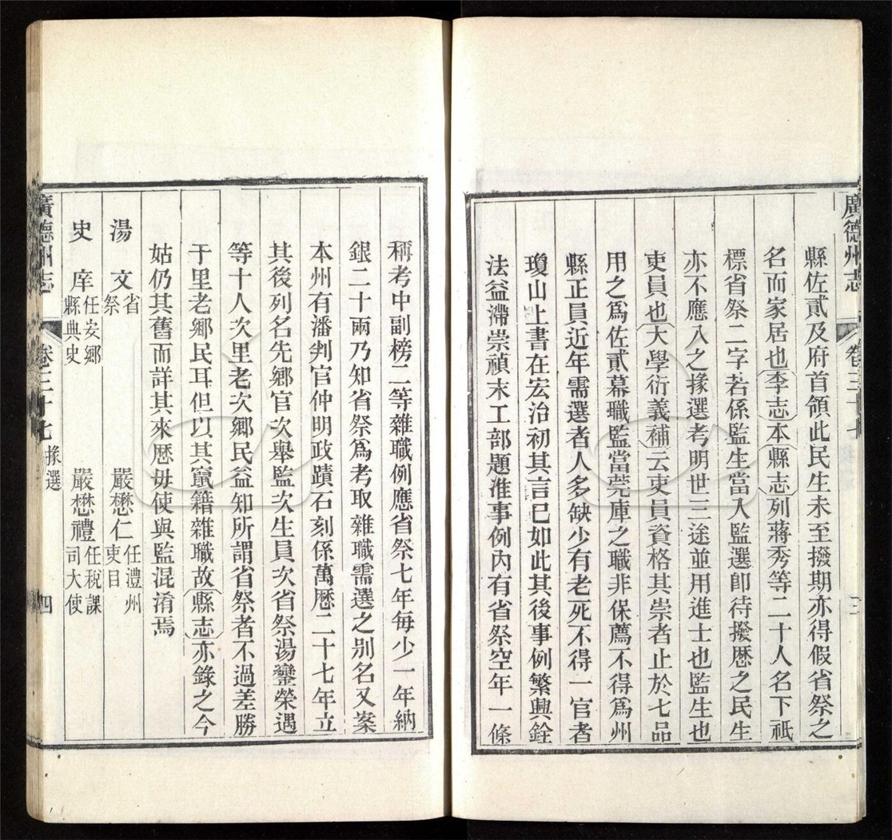 廣德州志 卷三十七 三
縣佐貳及府首領此民生未至撥期亦得假省祭之
名而家居也李志本縣志列蔣秀等二十人名下祗
標省祭二字若係監生當入監選卽待撥歷之民生
亦不應入之掾選考明世三途並用進士也監生也
吏員也大學衍義補云吏員資格其崇者止於七品
用之爲佐貳幕職監當莞庫之職非保薦不得爲州
縣正員近年需選者人多缺少有老死不得一官者
瓊山上書在宏治初其言已如此其後事例繁興銓
法益滯崇禎末工部題准事例內有省祭空年一條
稱考中副榜二等雜職例應省祭七年每少一年納
銀二十兩乃知省祭爲考取雜職需選之別名又案
本州有潘判官仲明政蹟石刻係萬歷二十七年立
其後列名先鄉官次舉監次生員次省祭湯鑾榮遇
等十人次里老次鄉民益知所謂省祭者不過差勝
于里老鄉民耳但以其竄籍雜職故縣志亦錄之今
姑仍其舊而詳其來歷毋使與監混淆焉
湯文 省祭 嚴懋仁 任澧州吏目
史庠 任安鄉縣典史 嚴懋禮 任稅課司大使
廣德州志 卷三十七 掾選 四